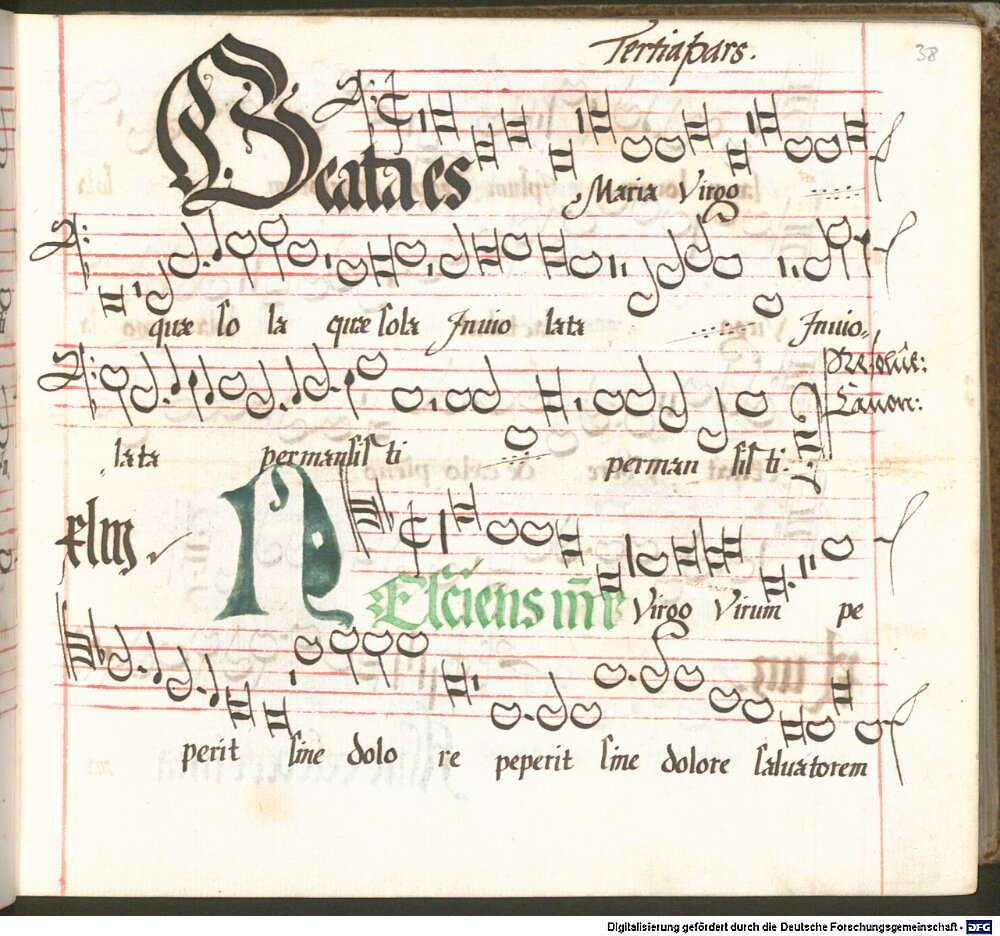 Tertia pars.
38
Beata es Maria Virgo
quæ so la quæ sola Inuio lata Inuio,,
lata permansis ti perman sis ti.
Canon:
Nesciens mr̄ Virgo Virum pe
perit sine dolo re peperit sine dolore saluatorem
Digitalisierung gefördert durch die Deutsche Forschungsgemeinschaft - DFG